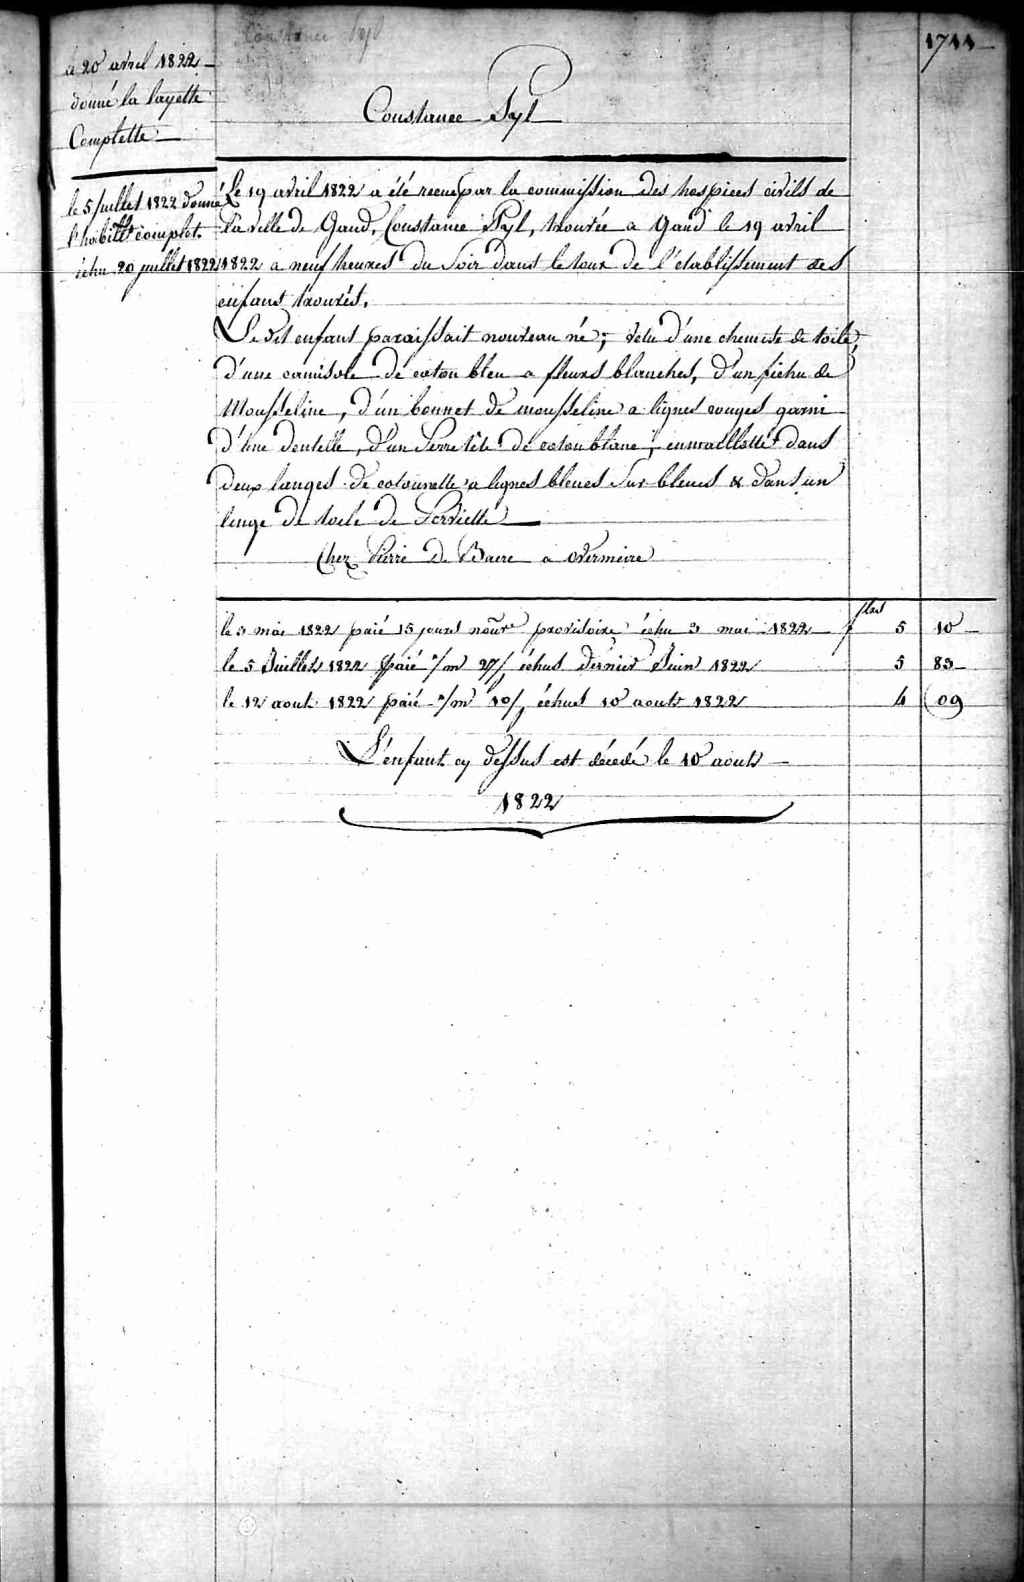 1744
Constance Pyl
le 20 avril 1822
donné la layette
Complette
le 5 Juillet 1822 donné
l'habillt complet
échu 20 juillet 1822
Constance Pyl
Le 19 avril 1822 a été recue par la commission des hospices civils de
la ville de Gand, Constance Pyl, trouvée a Gand le 19 avril
1822 a neuf heures du Soir dans le tour de l'etablissement des
enfans trouvés.
Le dit enfant paraissait nouveau né; vetu d'une chemise de toile,
d'une camisole de coton bleu a fleurs blanches, d'un fichu de
Mousseline, d'un bonnet de mousseline a lignes rouges garni
d'une dentelle, d'un Serre tête de coton blanc, enmaillotté dans
deux langes de cotonnette a lignes bleues Sur bleues & dans un
linge de toile de Serviette
Chez Pierre De Baere a Overmeire
flns
le 3 mai 1822 paié 15 jours nourre provisoire échu 3 mai 1822 f 5 10
le 5 Juillet 1822 paié 1/m 27/j échus dernier Juin 1822 5 83
le 12 aout 1822 paié 1/m 10/j échus 10 aout 1822 4 09
L'enfant cy dessus est décedé le 10 aout
1822